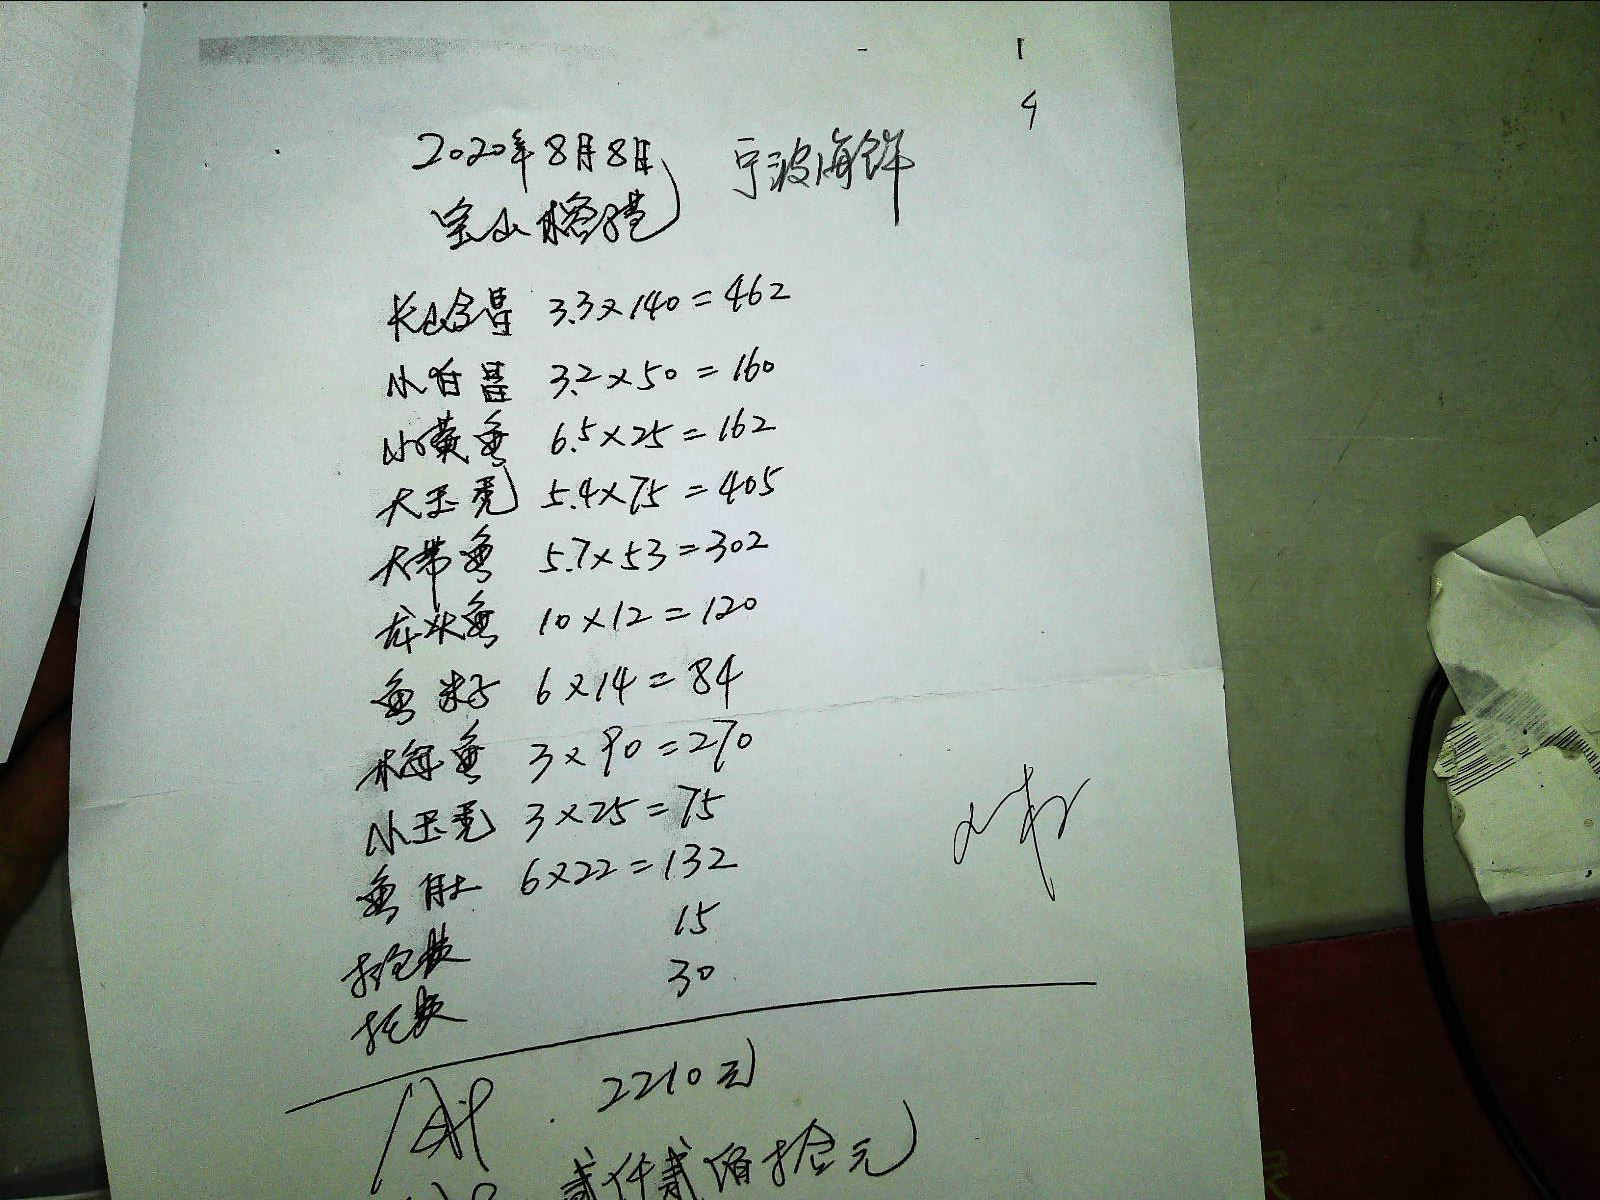 1
4
2020年8月8日 宁波海鲜
宝山
长山 3.3×140=462
小白昌 3.2×50=160
小黄鱼 6.5×25=162
大玉秃 5.4×75=405
大带鱼 5.7×53=302
龙头鱼 10×12=120
鱼籽 6×14=84
梅鱼 3×90=270
小玉秃 3×25=75
鱼肚 6×22=132
15
30
2210元
贰仟贰佰拾元